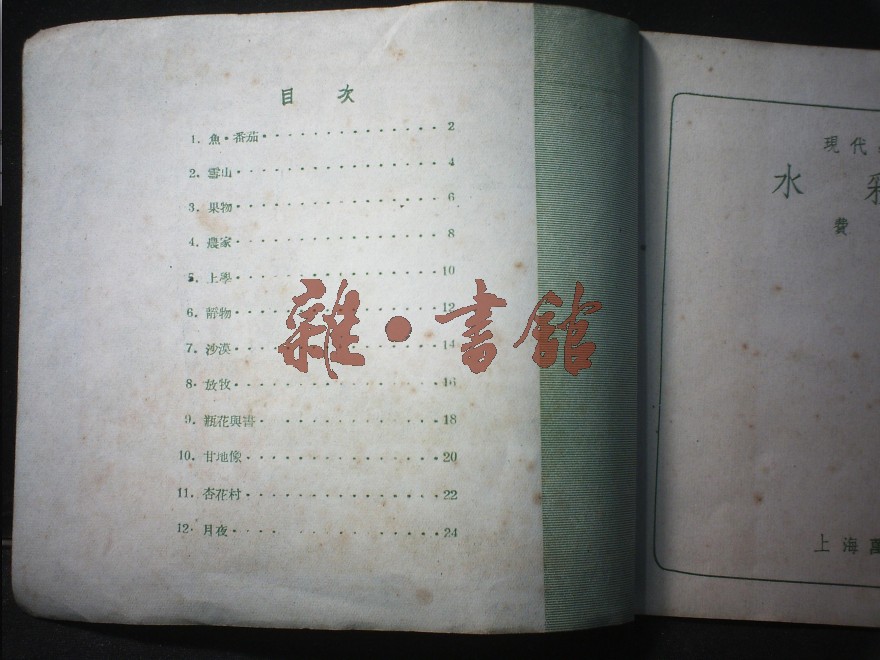 目 次
1. 魚·番茄 2
2. 雪山 4
3. 果物 6
4. 農家 8
5. 上學 10
6. 靜物 12
7. 沙漠 14
8. 放牧 16
9. 瓶花與書 18
10. 甘地像 20
11. 杏花村 22
12. 月夜 24
雜·書館
現代
水 彩
費
上海萬